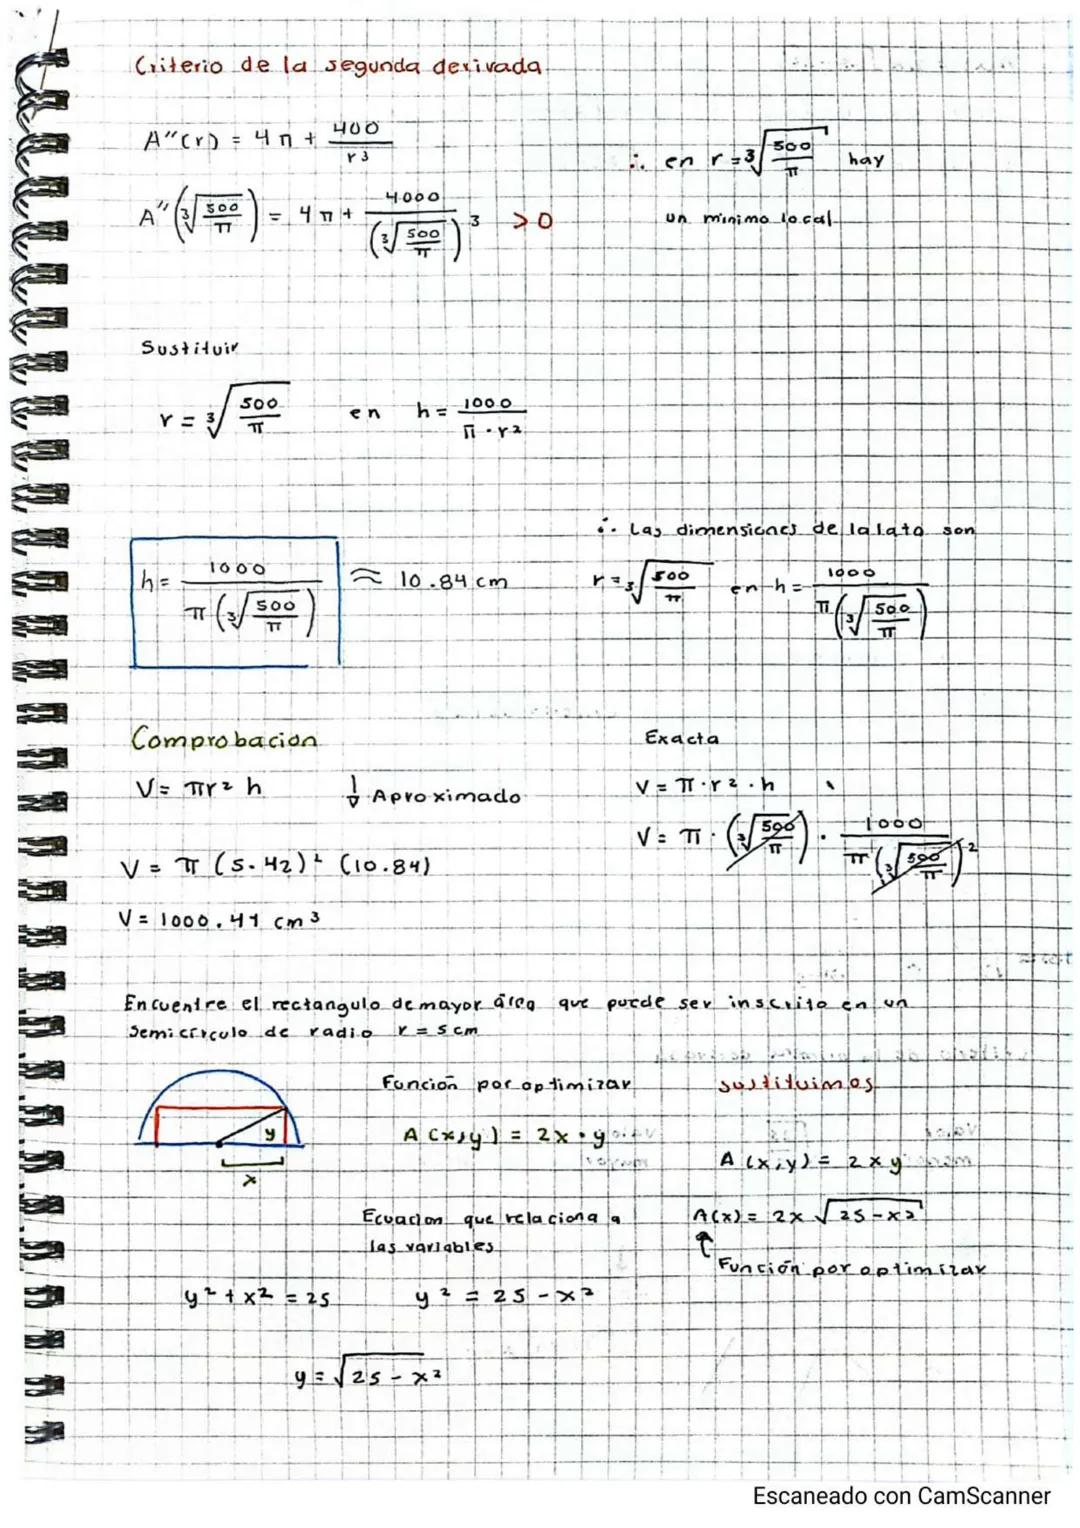 Criterio de la segunda derivada
A''(r) = 4π + 400/r3
A''(∛(500/π)) = 4π + 4000/(∛(500/π))3 >0
∴ en r = ∛(500/π) hay
un minimo local
Sustituir
r = ∛(500/π) en h = 1000/(π · r2)
∴ Las dimensiones de la lata son
h = 1000/(π(∛(500/π))) ≈ 10.84 cm
r = ∛(500/π) en h = 1000/(π(∛(500/π)))
Comprobacion
V = πr2 h
Aproximado
V = π (5.42)2 (10.84)
V = 1000.41 cm3
Exacta
V = π · r2 · h
V = π · (∛(500/π)) · 1000/(π(∛(500/π))2)
Encuentre el rectangulo de mayor área que puede ser inscrito en un
Semicírculo de radio r = 5 cm
y
x
Función por optimizar
A (x,y) = 2x · y
Ecuacion que relaciona a
las variables
y2 + x2 = 25
y2 = 25 - x2
y = √(25 - x2)
sustituimos
A (x,y) = 2xy
A(x) = 2x √(25-x2)
↑
Función por optimizar
Escaneado con CamScanner